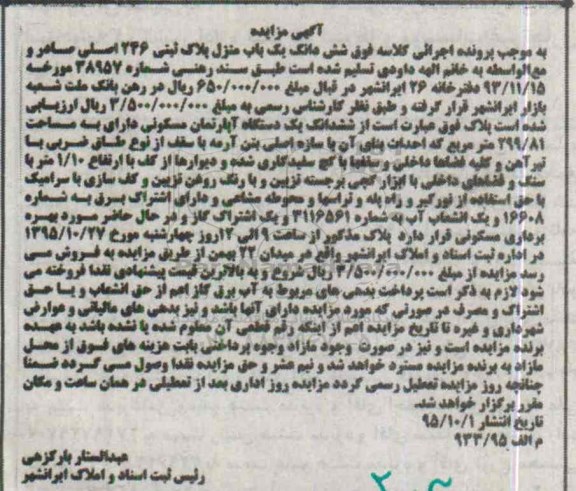 آگهی مزایده
به موجب پرونده اجرائی کلاسه فوق شش دانگ یک باب منزل پلاک ثبتی ۲۳۶ اصلی صادر و
مع‌الواسطه به خانم الهه داودی تسلیم شده است طبق سند رهنی شماره ۳۸۹۵۷ مورخه
۹۳/۱۱/۱۵ دفترخانه ۲۶ ایرانشهر در قبال مبلغ ۶۵۰/۰۰۰/۰۰۰ ریال در رهن بانک ملت شعبه
بازار ایرانشهر قرار گرفته و طبق نظر کارشناس رسمی به مبلغ ۳/۵۰۰/۰۰۰/۰۰۰ ریال ارزیابی
شده است پلاک فوق عبارت است از ششدانگ یک دستگاه آپارتمان مسکونی دارای به مساحت
۲۹۹/۸۱ متر مربع که احداث بنای آن با سازه اصلی بتن آرمه با سقف از نوع طاق ضربی با
تیرآهن و کلیه فضاها داخلی و سقفها با گچ سفیدکاری شده و دیوارها از کف با ارتفاع ۱/۱۰ متر با
سنگ و فضاهای داخلی با ابزار گچی برجسته تزیین و با رنگ روغن تزیین و کف سازی با سرامیک
با حق استفاده از نورگیر و راه پله و تراسها و محوطه مشاعی و دارای اشتراک برق به شماره
۱۶۶۰۸ و یک انشعاب آب به شماره ۳۱۱۶۵۶۱ و یک اشتراک گاز و در حال حاضر مورد بهره
برداری مسکونی قرار دارد پلاک مذکور از ساعت ۹ الی ۱۲ روز چهارشنبه مورخ ۱۳۹۵/۱۰/۲۷
در اداره ثبت اسناد و املاک ایرانشهر واقع در میدان ۲۲ بهمن از طریق مزایده به فروش می
رسد مزایده از مبلغ ۳/۵۰۰/۰۰۰/۰۰۰ ریال شروع و به بالاترین قیمت پیشنهادی نقدا فروخته می
شود لازم به ذکر است پرداخت بدهی های مربوط به آب برق گاز اعم از حق انشعاب و یا حق
اشتراک و مصرف در صورتی که مورد مزایده دارای آنها باشد و نیز بدهی های مالیاتی و عوارض
شهرداری و غیره تا تاریخ مزایده اعم از اینکه رقم قطعی آن معلوم شده یا نشده باشد به عهده
برنده مزایده است و نیز در صورت وجود مازاد وجوه پرداختی بابت هزینه های فوق از محل
مازاد به برنده مزایده مسترد خواهد شد و نیم عشر و حق مزایده نقدا وصول می گردد ضمنا
چنانچه روز مزایده تعطیل رسمی گردد مزایده روز اداری بعد از تعطیلی در همان ساعت و مکان
مقرر برگزار خواهد شد.
تاریخ انتشار ۹۵/۱۰/۱
م الف ۹۳۳/۹۵
عبدالستار بارکزهی
رئیس ثبت اسناد و املاک ایرانشهر